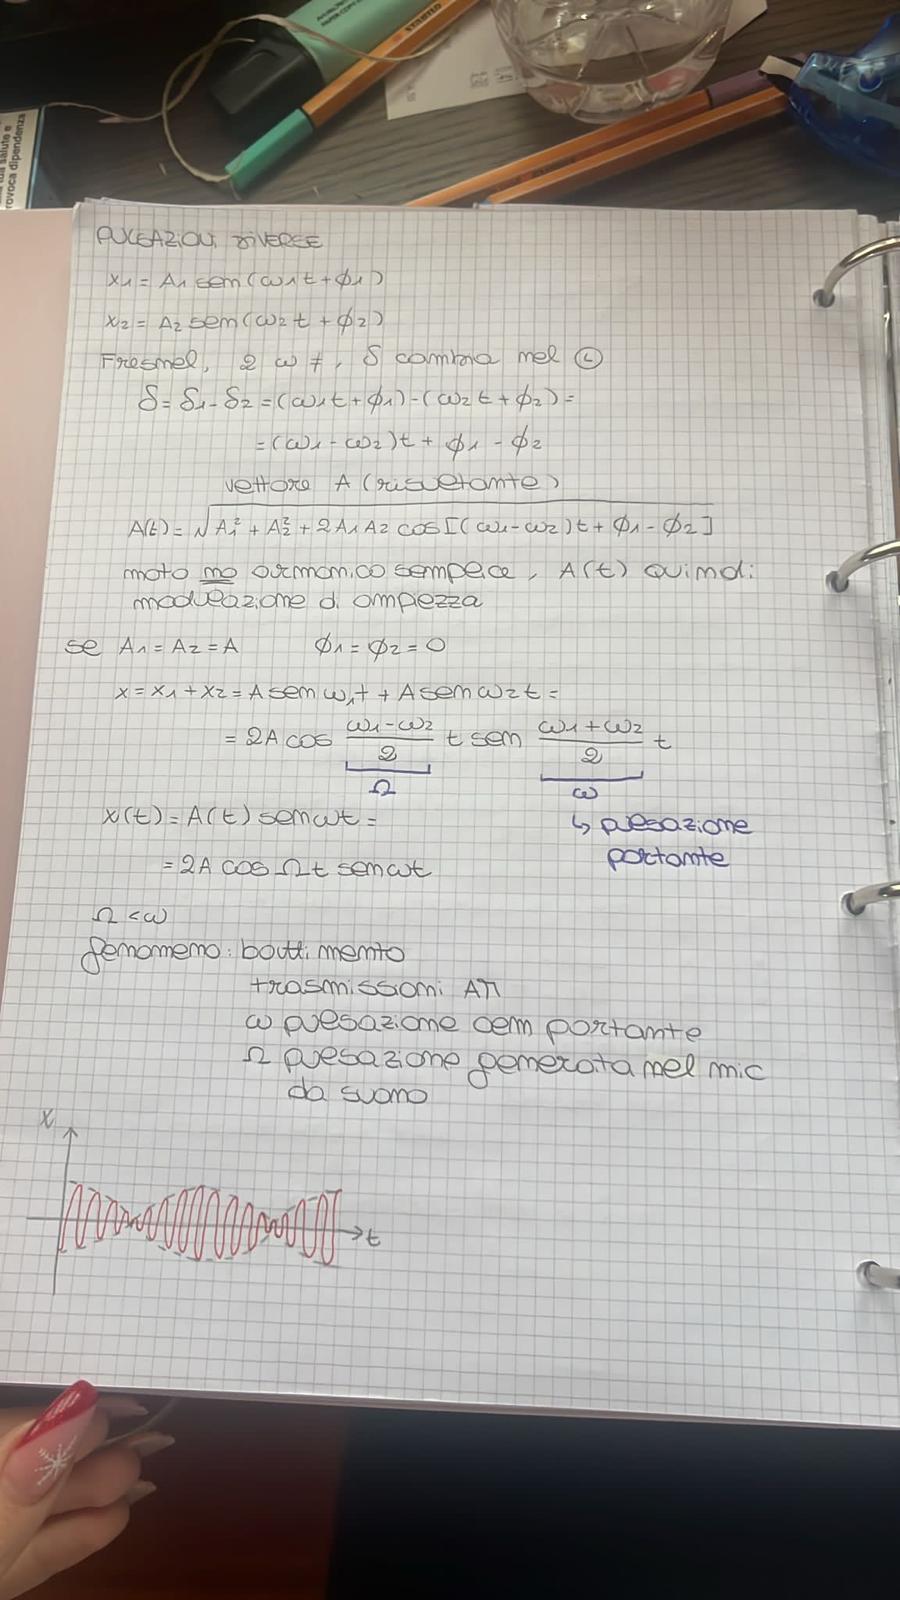 tua salute e
provoca dipendenza
STABILO
PULSAZIONI DIVERSE
x₁ = A₁ sen(ω₁t + ϕ₁)
x₂ = A₂ sen(ω₂t + ϕ₂)
Fresnel, 2 ω ≠, δ cambia nel (t)
δ = δ₁ - δ₂ = (ω₁t + ϕ₁) - (ω₂t + ϕ₂) =
= (ω₁ - ω₂)t + ϕ₁ - ϕ₂
vettore A (risultante)
A(t) = √A₁² + A₂² + 2A₁A₂ cos[(ω₁-ω₂)t + ϕ₁ - ϕ₂]
moto no armonico semplice, A(t) quindi
modulazione di ampiezza
se A₁ = A₂ = A ϕ₁ = ϕ₂ = 0
x = x₁ + x₂ = A sen ω₁t + A sen ω₂t =
= 2A cos (ω₁-ω₂)/2 t sen (ω₁+ω₂)/2 t
Ω ω
x(t) = A(t) sen ωt =
↳ pulsazione
portante
= 2A cos Ωt sen ωt
Ω < ω
fenomeno: battimento
trasmissioni AM
ω pulsazione oem portante
Ω pulsazione generata nel mic
da suono
x
t